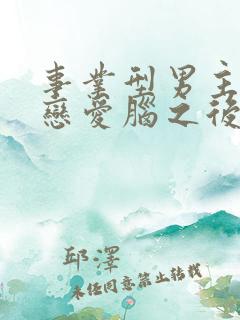 事業型男主
戀愛腦之後
邱澤
未經同意禁止轉載